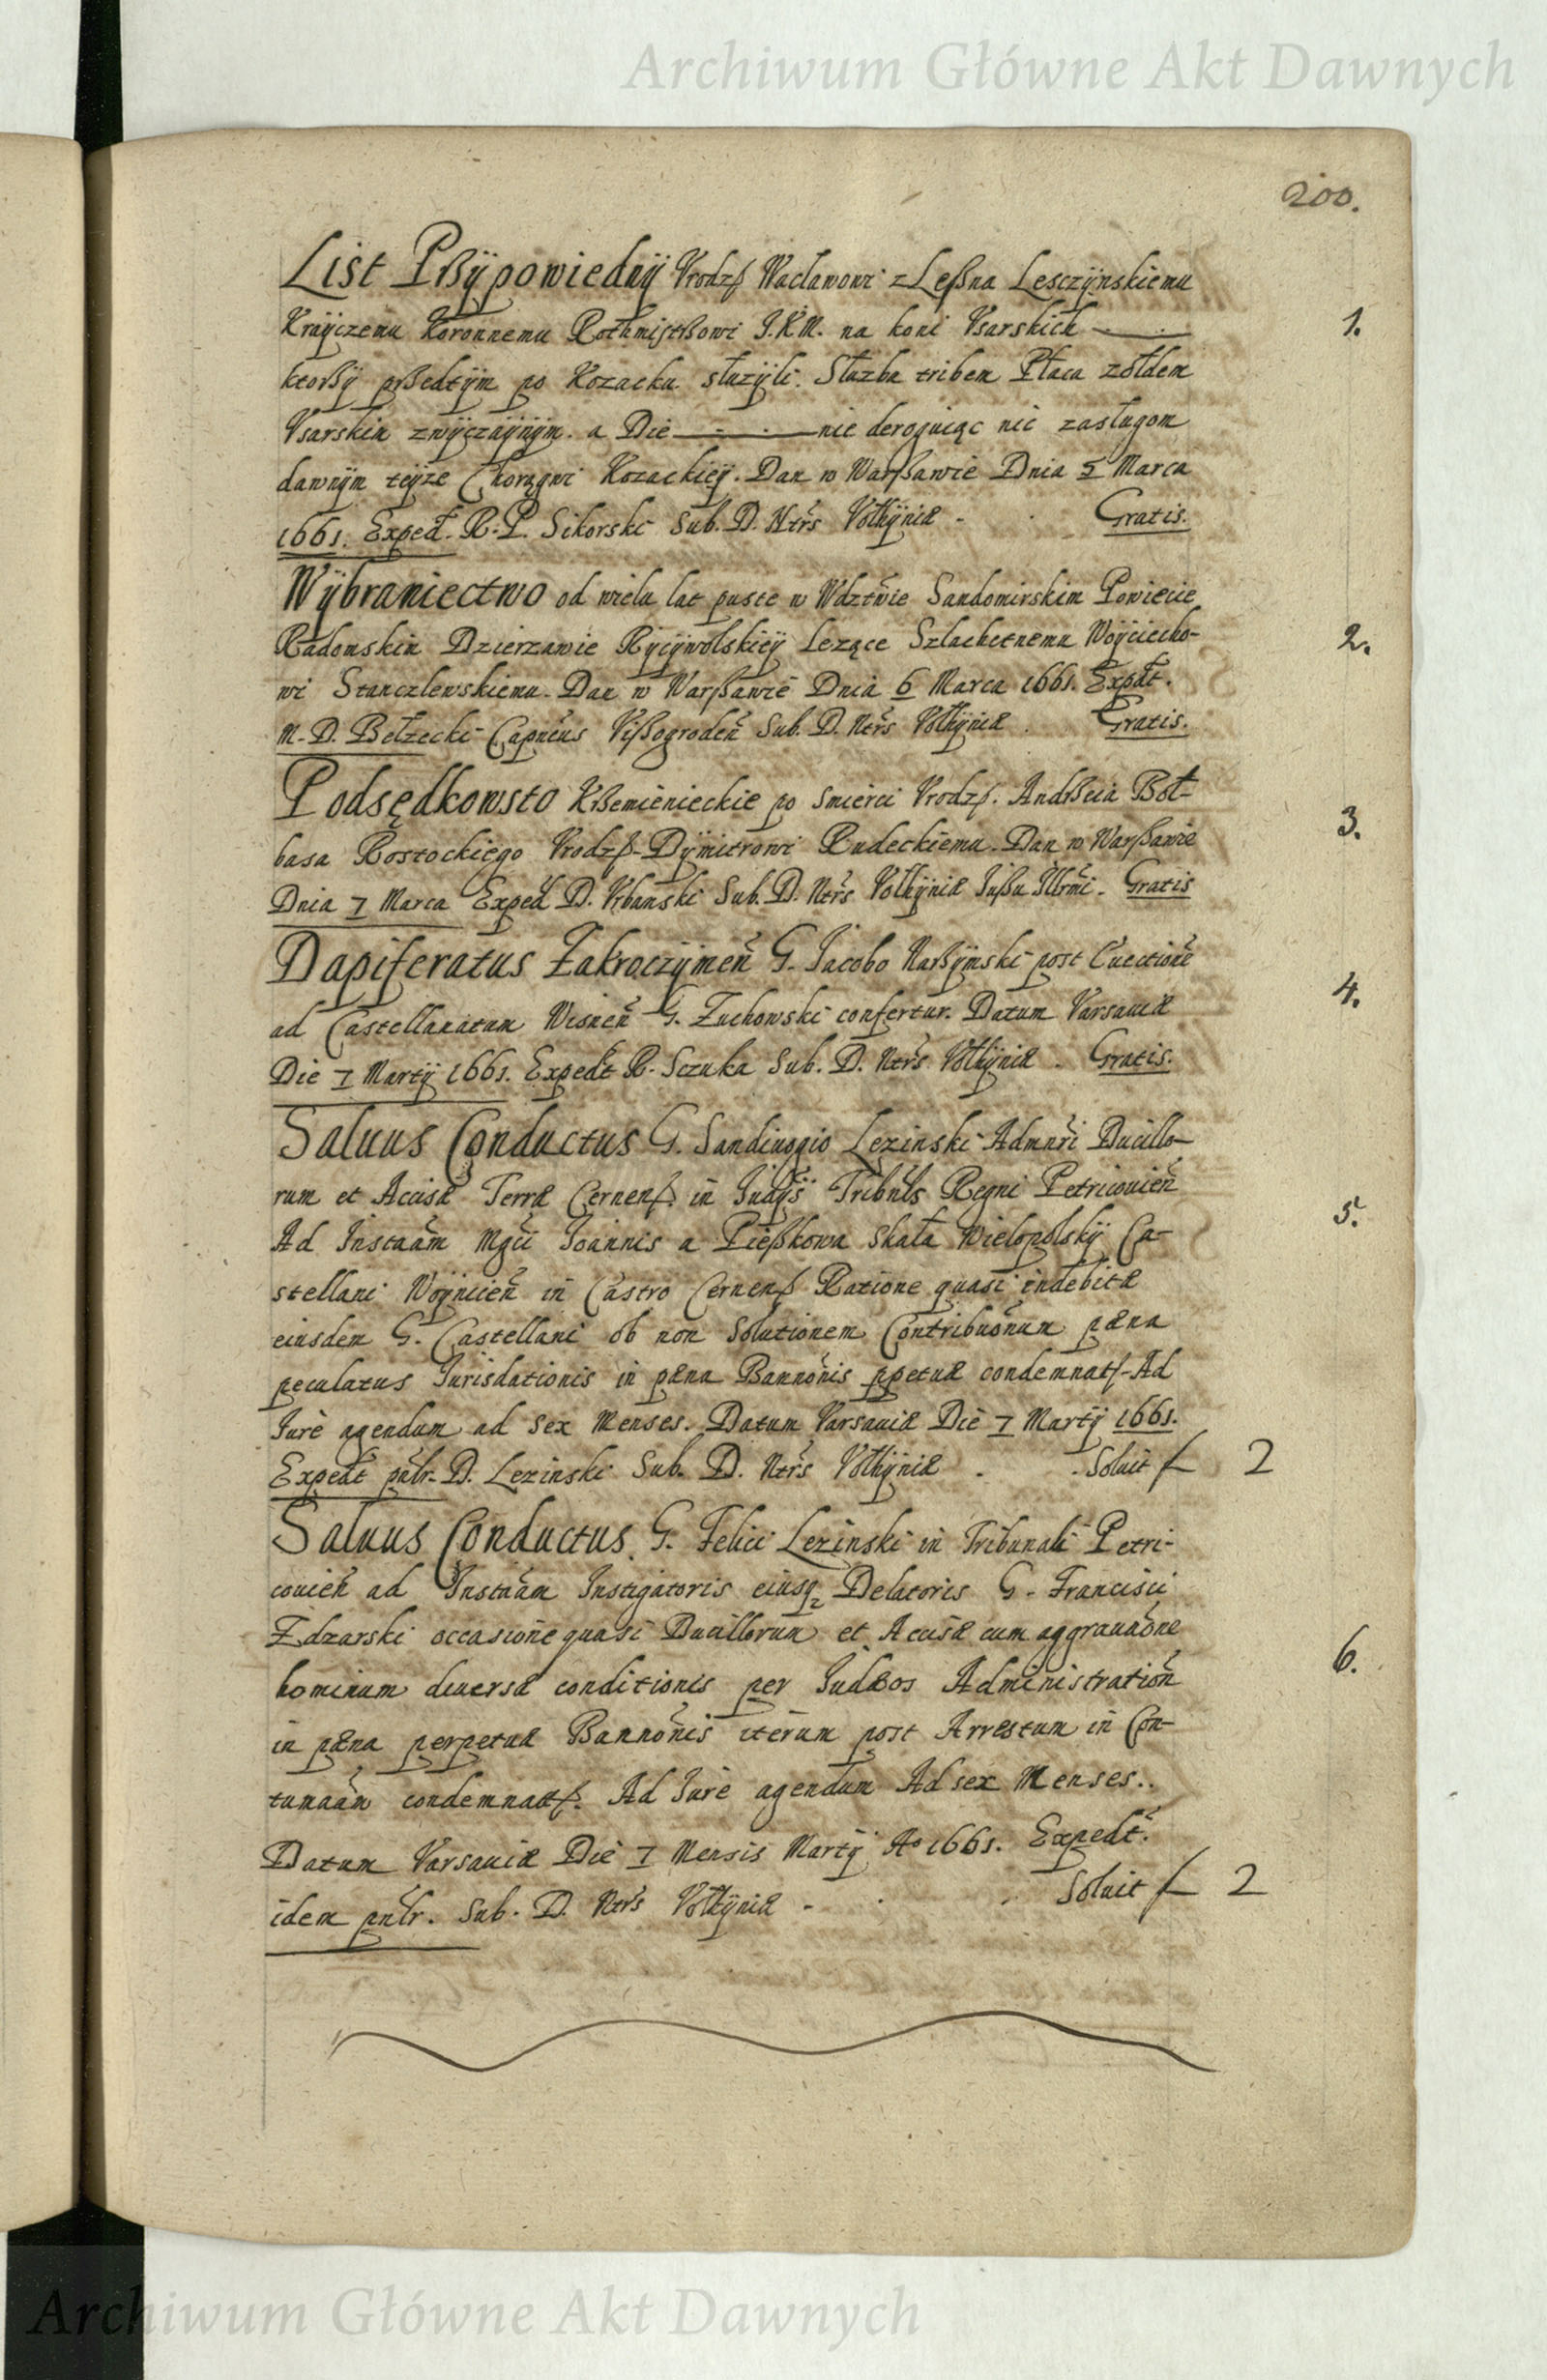 Archiwum Główne Akt Dawnych
200.
List Prßÿpowiednÿ Vrodzß Wacławowi z Leßna Lesczÿnskiemu
Kraÿczemu Koronnemu Rothmistrßowi J.K.M. na koni Vsarskich
1.
ktorßÿ prßedtÿm po Kozacku słuzÿli. Słuzba tribem Płaca zołdem
Vsarskim zwÿczaÿnÿm. a Die nie deroguiąc nic zasługom
dawnÿm teÿze Chorągwi Kozackieÿ. Dan w Warßawie Dnia 5 Marca
1661. Exped. R. P. Sikorski Sub. D. Ntrs Volhÿniæ - Gratis.
Wÿbraniectwo od wielu lat puste w Wdztwie Sandomirskim Powiecie
Radomskim Dzierzawie Rÿcÿwolskieÿ Lezące Szlachetnemu Woÿciecho-
2.
wi Stanczlewskiemu. Dan w Warßawie Dnia 6 Marca 1661. Expdt.
M. D. Bełzecki Capneus Vißogroden Sub. D. Ntrs Volhÿniæ. Gratis.
Podsędkowsto Krßemienieckie po smierci Vrodzß. Andrßeia Boł-
basa Rostockiego Vrodzß Dÿmitrowi Rudeckiemu. Dan w Warßawie
3.
Dnia 7 Marca Exped D. Vrbanski Sub. D. Ntrs Volhÿniæ Jußu Illrmi. Gratis
Dapiferatus Zakroczÿmen G. Jacobo Narßÿmski post Euection
ad Castellanatum Wisnen G. Zuchowski confertur. Datum Varsauiæ
4.
Die 7 Martÿ 1661. Expedt R. Sczuka Sub. D. Ntrs Volhÿniæ. Gratis.
Saluus Conductus G. Sandiuogio Lezinski Admnri Ducillo-
rum et Accisæ Terræ Cernenß. in Judÿs Tribnls Regni Petricouien
5.
Ad Instaam Mgci Joannis a Pießkowa Skała Wielopolskÿ Ca-
stellani Woÿnicien in Castro Cernenß Ratione quasi indebitæ
eiusdem G. Castellani ob non Solutionem Contribuonum pæna
peculatus Jurisdationis in pæna Bannonis ppetuæ condemnatß. Ad
Jure agendum ad sex Menses. Datum Varsauiæ Die 7 Martÿ 1661.
Expedt pntr. D. Lezinski Sub. D. Ntrs Volhÿniæ . Soluit f 2
Saluus Conductus G. Felici Lezinski in Tribunali Petri-
couien ad Instaam Instigatoris eiusq Delatoris G. Francisci
Zdzarski occasione quasi Ducillorum et Accisæ cum aggrauaone
6.
hominum diuersæ conditionis per Judæos Administration
in pæna perpetuæ Bannonis iterum post Arrestum in Con-
tumaam condemnatß. Ad Jure agendum Ad sex Menses..
Datum Varsauiæ Die 7 Mensis Martÿ Ao 1661. Expedt.
idem pntr. Sub. D. Ntrs Volhÿniæ - Soluit f 2
Archiwum Główne Akt Dawnych